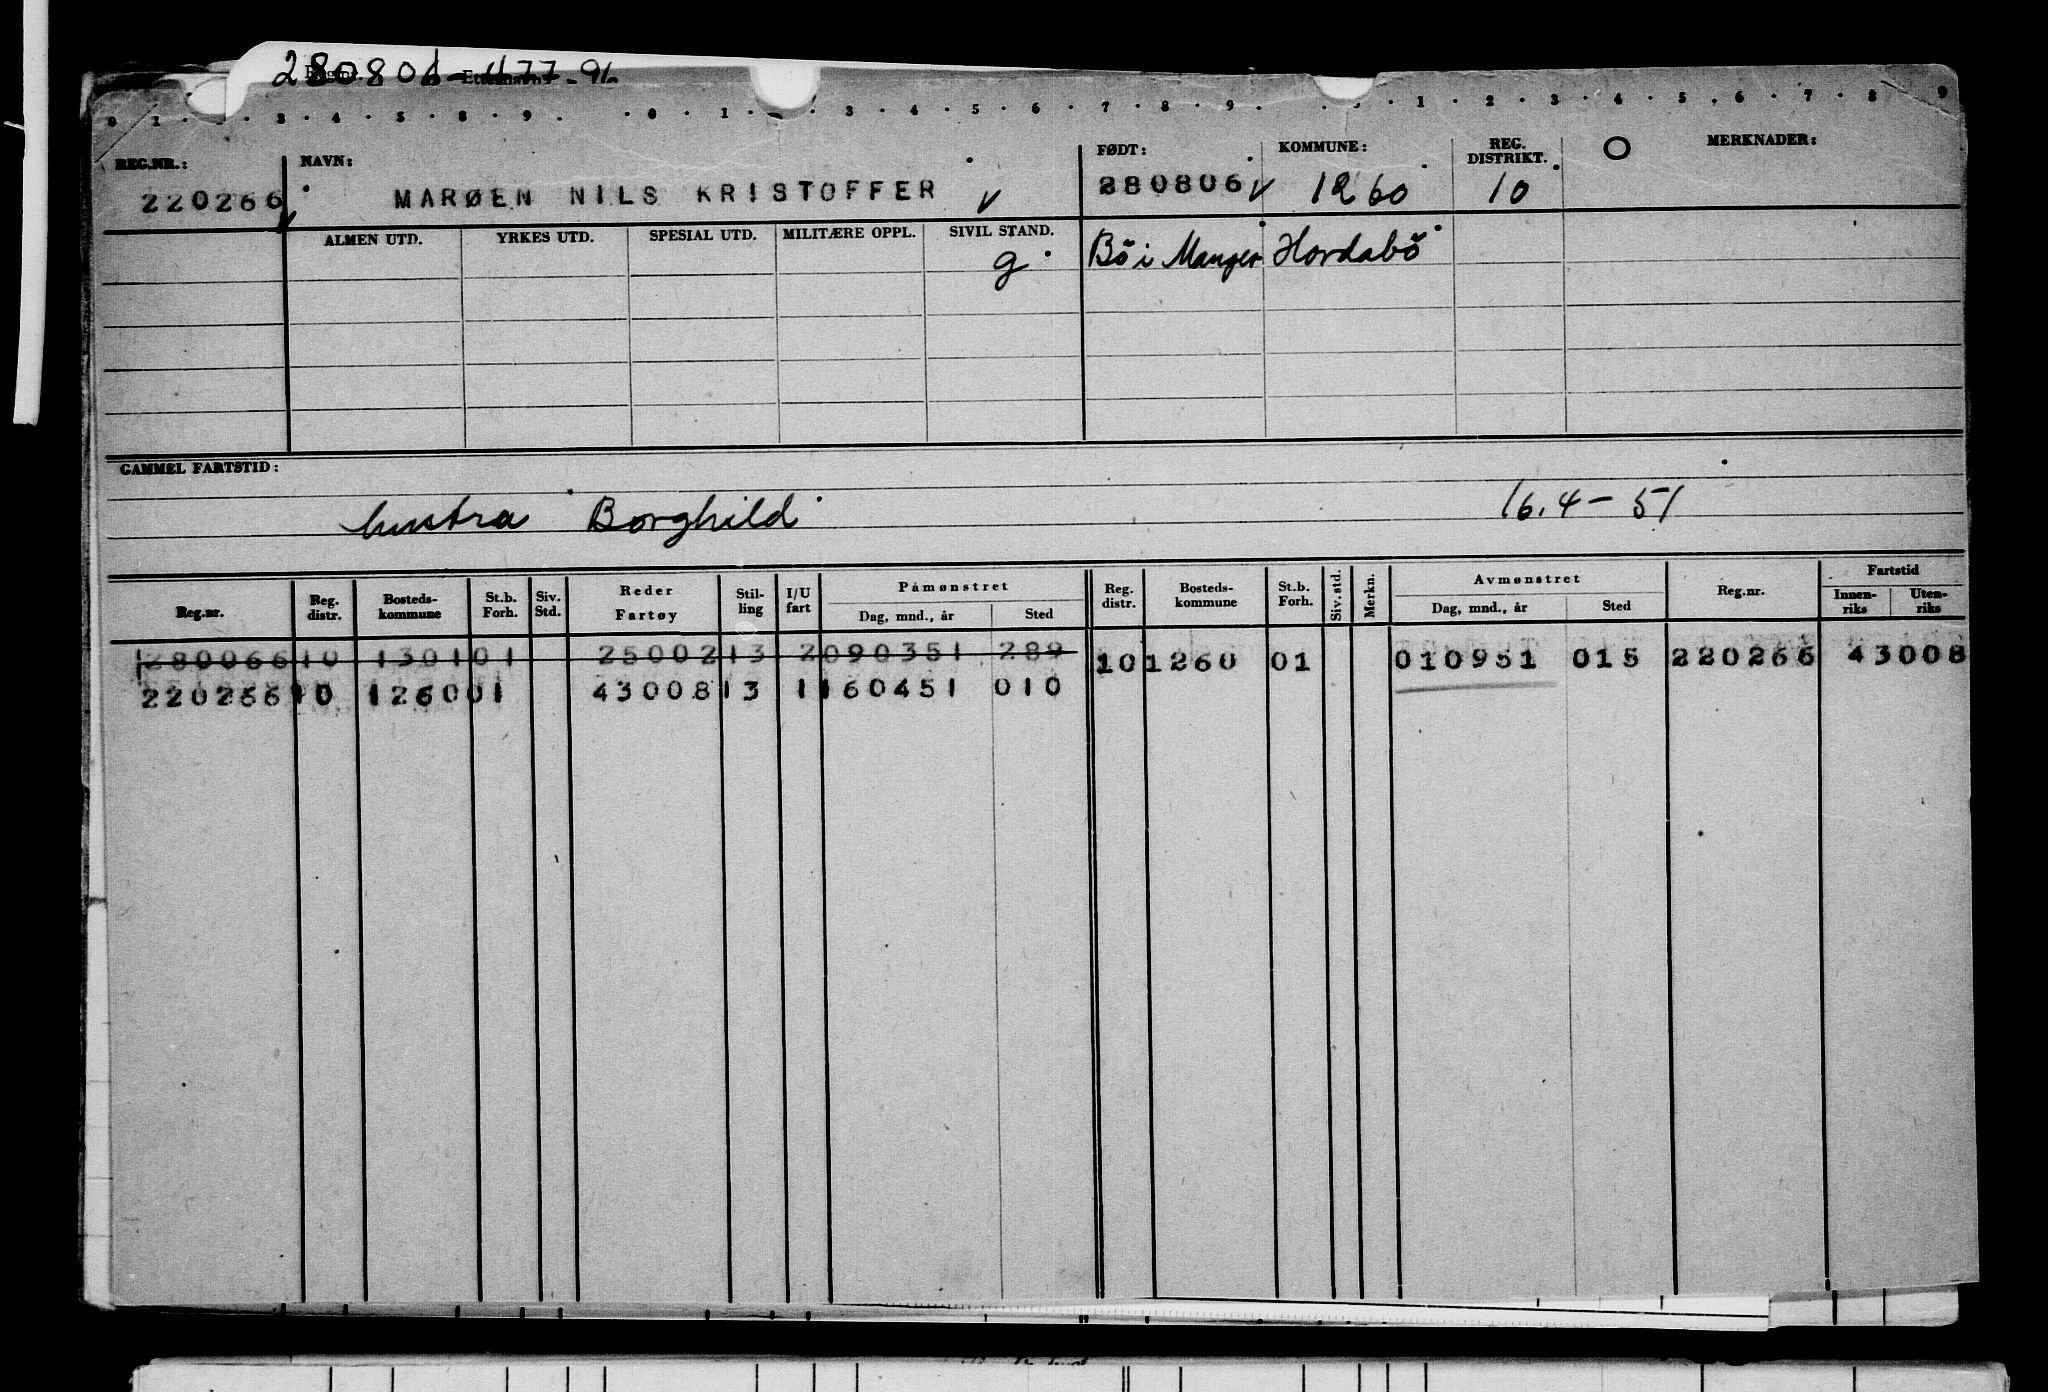 280806-47796
0 1 3 4 5 8 9 0 1 3 4 5 6 7 8 9 1 2 3 4 5 6 7 8 9
REG.NR.: NAVN: FØDT: KOMMUNE: REG. DISTRIKT. O MERKNADER:
220266 MARØEN NILS KRISTOFFER v 280806 v 1260 10
ALMEN UTD. YRKES UTD. SPESIAL UTD. MILITÆRE OPPL. SIVIL STAND. Bö i Manger Hordabö
g
GAMMEL FARTSTID:
hustra Borghild 16.4-51
Reg.nr. Reg. distr. Bosteds-kommune St.b. Forh. Siv. Std. Reder Fartøy Stil-ling I/U fart Påmønstret Dag, mnd., år Sted Reg. distr. Bosteds-kommune St.b. Forh. Siv. std. Merkn. Avmønstret Dag, mnd., år Sted Reg.nr. Fartstid Innen-riks Uten-riks
280066 10 1301 01 25002 13 2 090351 289 10 1260 01 010951 015 220266 43008
220266 10 1260 01 43008 13 1 160451 010